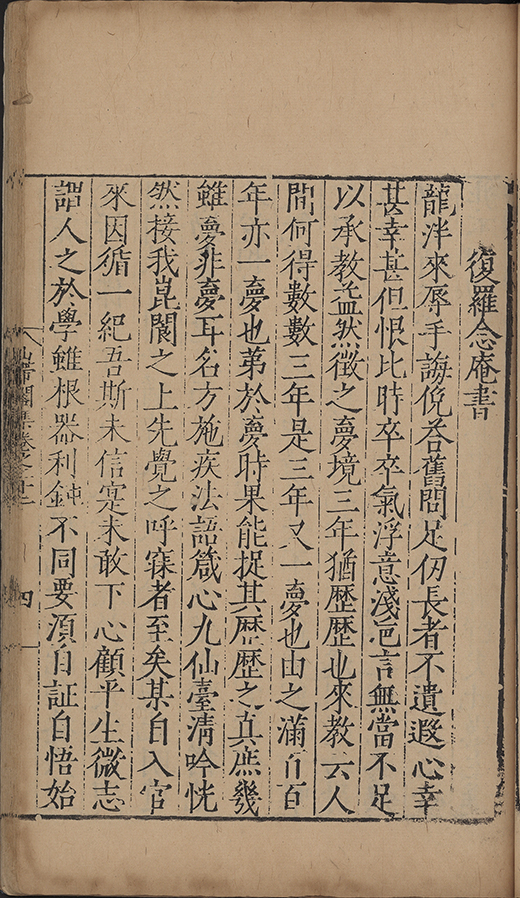 復羅念庵書
龍泮來辱手誨俛荅舊問足仞長者不遺遐心幸
甚幸甚但恨比時卒卒氣浮意淺芭言無當不足
以承教盂然徴之夢境三年猶歷歷也來教云人
間何得數數三年是三年又一夢也由之滿百百
年亦一夢也弟於夢時果能捉其歷歷之真庶幾
雖夢非夢耳名方施疾法語箴心九仙臺清吟恍
然接我崑閬之上先覺之呼寐者至矣某自入官
來因循一紀吾斯未信寔未敢下心顧平生微志
謂人之於學雖根器利鈍不同要湏自証自悟始
四